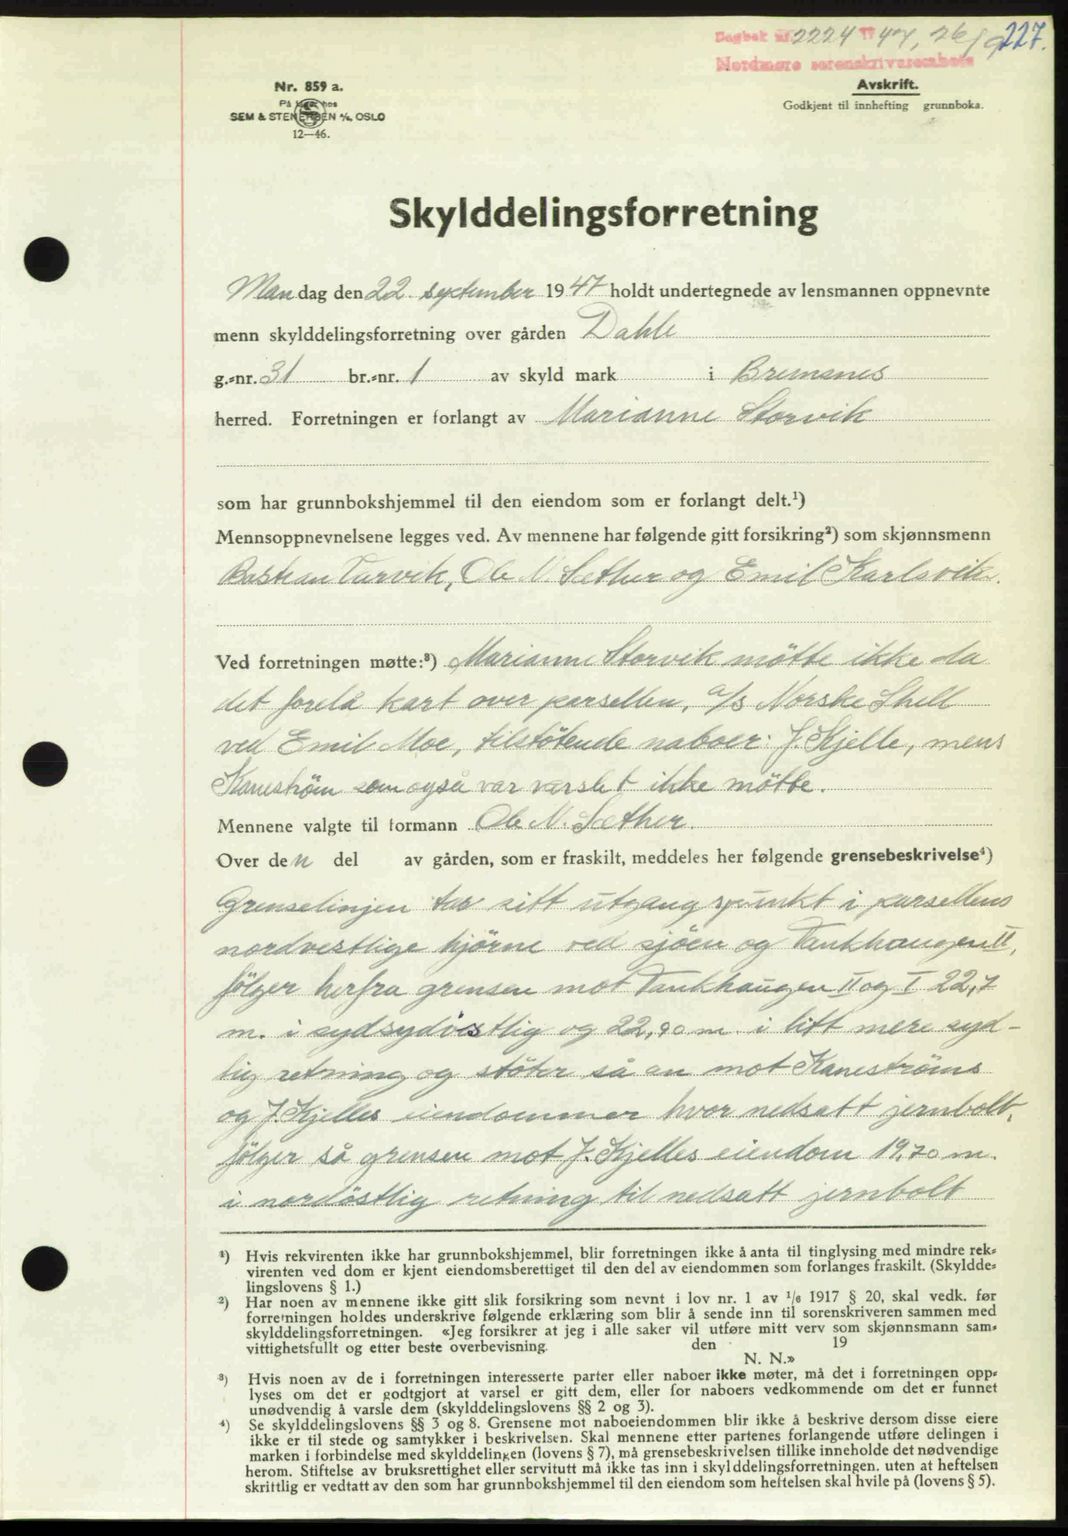 Dagbok nr. 2224 19 47, 26/9 227.
Nordmøre sorenskriverembete
Nr. 859 a.
På lager hos
SEM & STENERSEN A/S, OSLO
12—46.
Avskrift.
Godkjent til innhefting grunnboka.
Skylddelingsforretning
Mandag den 22 september 1947 holdt undertegnede av lensmannen oppnevnte
menn skylddelingsforretning over gården Dahle
g.-nr. 31 br.-nr. 1 av skyld mark i Bremsnes
herred. Forretningen er forlangt av Marianne Storvik
som har grunnbokshjemmel til den eiendom som er forlangt delt.¹)
Mennsoppnevnelsene legges ved. Av mennene har følgende gitt forsikring²) som skjønnsmenn
Bastian Varvik, Ole N. Sæther og Emil Karlsvik.
Ved forretningen møtte:³) Marianne Storvik møtte ikke da
det forelå kart over parsellen, a/s Norske Shell
ved Emil Moe, tilstøtende naboer: J. Kjelle, mens
Kanestrøm som også var varslet ikke møtte.
Mennene valgte til formann Ole N. Sæther.
Over den del av gården, som er fraskilt, meddeles her følgende grensebeskrivelse⁴)
Grenselinjen tar sitt utgangspunkt i parsellens
nordvestlige hjørne ved sjøen og Tankhaugen II,
følger herfra grensen mot Tankhaugen II og I 22,7
m. i sydsydvestlig og 22,90 m. i litt mere syd-
lig retning og støter så an mot Kanestrøms
og J. Kjelles eiendommer hvor nedsatt jernbolt,
følger så grensen mot J. Kjelles eiendom 19,70 m.
i nordøstlig retning til nedsatt jernbolt
¹) Hvis rekvirenten ikke har grunnbokshjemmel, blir forretningen ikke å anta til tinglysing med mindre rek-
virenten ved dom er kjent eiendomsberettiget til den del av eiendommen som forlanges fraskilt. (Skyldde-
lingslovens § 1.)
²) Har noen av mennene ikke gitt slik forsikring som nevnt i lov nr. 1 av 1/6 1917 § 20, skal vedk. før
forretningen holdes underskrive følgende erklæring som blir å sende inn til sorenskriveren sammen med
skylddelingsforretningen. «Jeg forsikrer at jeg i alle saker vil utføre mitt verv som skjønnsmann sam-
vittighetsfullt og etter beste overbevisning. den 19
N. N.»
³) Hvis noen av de i forretningen interesserte parter eller naboer ikke møter, må det i forretningen opp-
lyses om det er godtgjort at varsel er gitt dem, eller for naboers vedkommende om det er funnet
unødvendig å varsle dem (skylddelingslovens §§ 2 og 3).
⁴) Se skylddelingslovens §§ 3 og 8. Grensene mot naboeiendommen blir ikke å beskrive dersom disse eiere
ikke er til stede og samtykker i beskrivelsen. Skal mennene etter partenes forlangende utføre delingen i
marken i forbindelse med skylddelingen (lovens § 7), må grensebeskrivelsen tillike inneholde det nødvendige
herom. Stiftelse av bruksrettighet eller servitutt må ikke tas inn i skylddelingsforretningen. uten at heftelsen
skrittlig er vedtatt av den som har grunnbokshjemmel til den eiendom som heftelsen skal hvile på (lovens § 5).